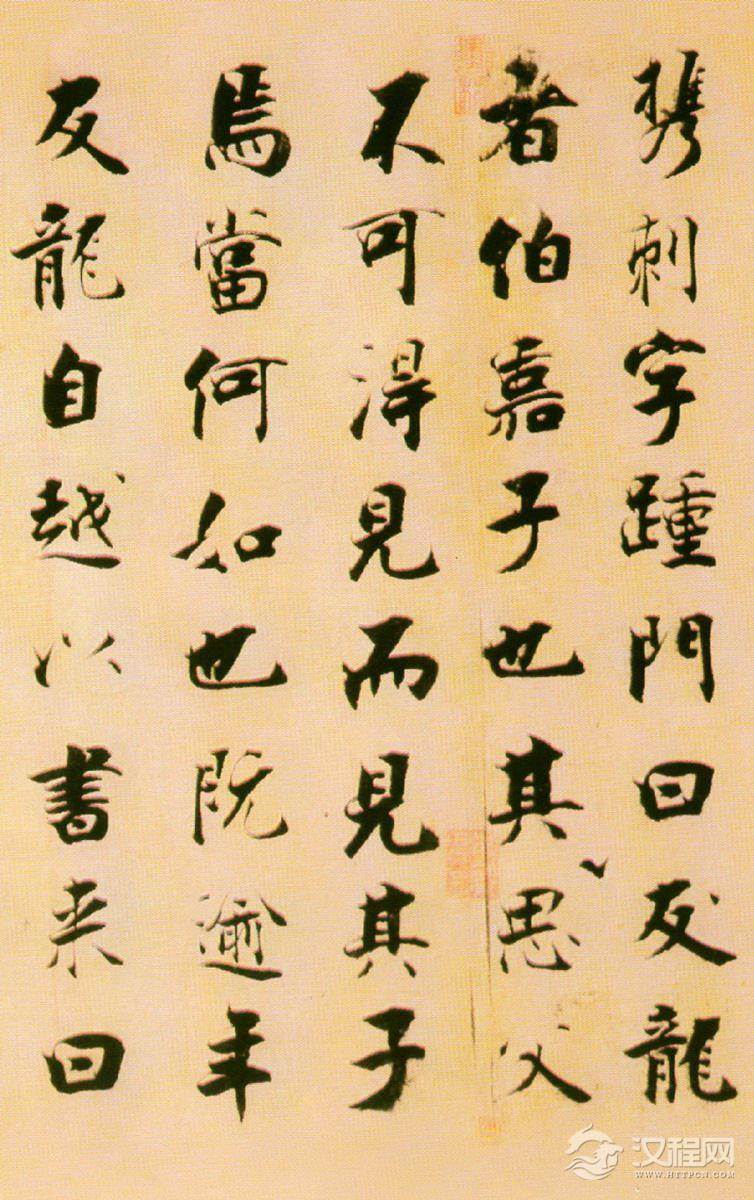 携刺字踵門曰友龍
者伯嘉子也其思父
不可得見而見其子
焉當何如也既逾年
友龍自越以書来曰
汉程网
WWW.HTTPCN.COM